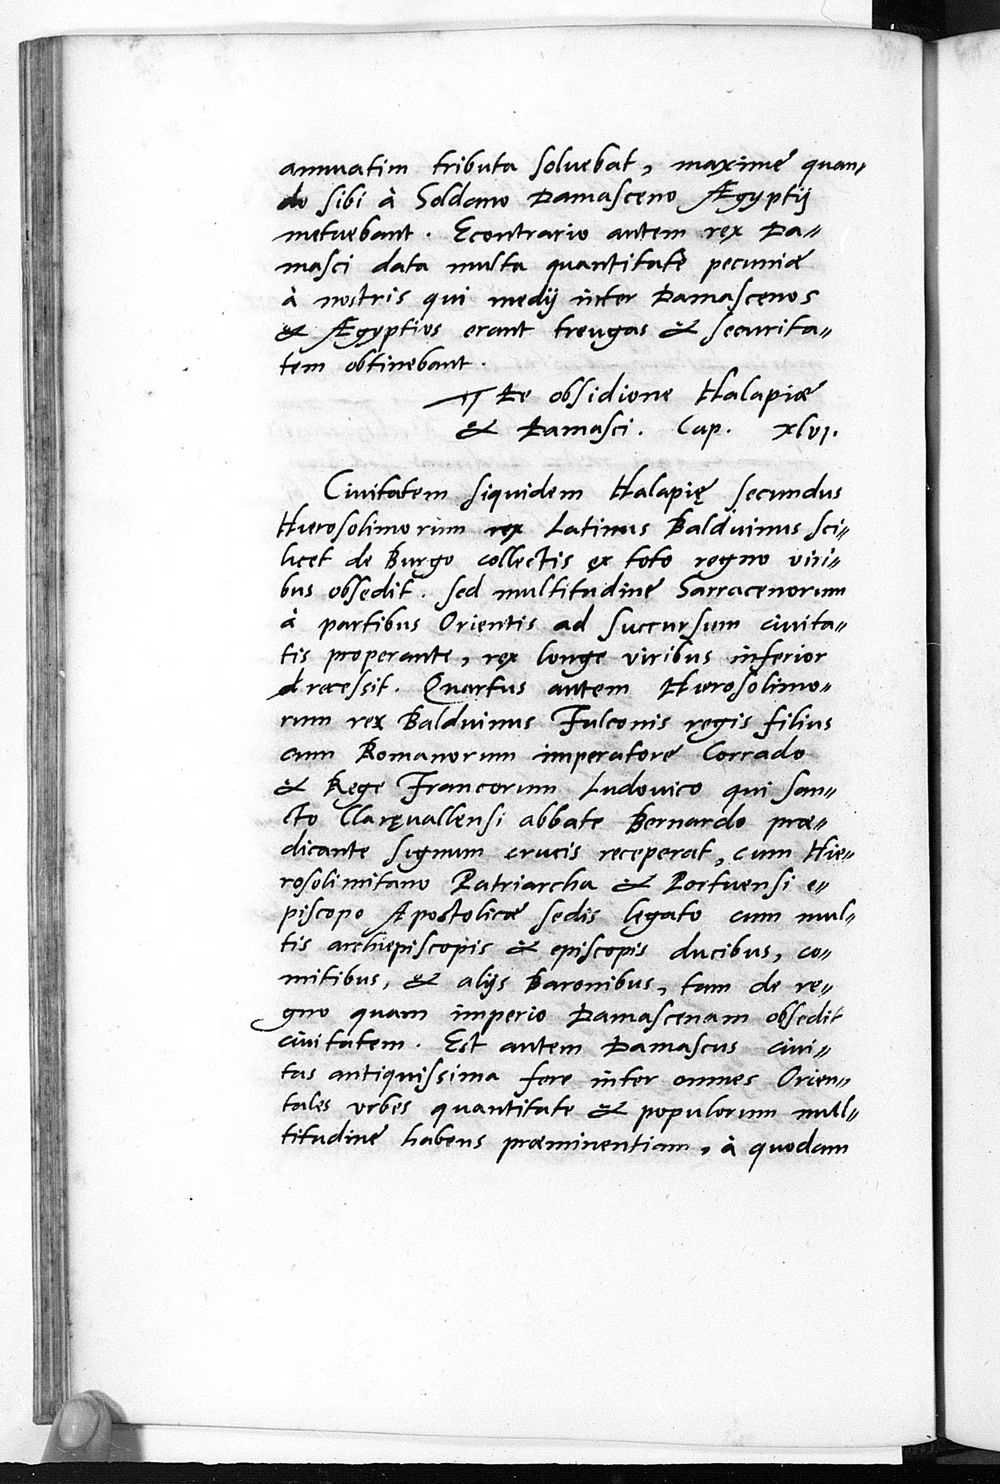 annuatim tributa soluebat, maximè quan-
do sibi à Soldano Damasceno Ægyptij
metuebant. Econtrario autem rex Da-
masci data multa quantitate pecuniæ
à nostris qui medij inter Damascenos
& Ægyptios erant treugas & securita-
tem obtinebant.
¶ De obsidione Halapiæ
& Damasci. Cap. xlvj.
Ciuitatem siquidem Halapię secundus
Hierosolimorum rex Latinus Balduinus sci-
licet de Burgo collectis ex toto regno viri-
bus obsedit. sed multitudine Sarracenorum
à partibus Orientis ad succursum ciuita-
tis properante, rex longe viribus inferior
recessit. Quartus autem Hierosolimo-
rum rex Balduinus Fulconis regis filius
cum Romanorum imperatore Corrado
& Rege Francorum Ludouico qui san-
cto Claręuallensi abbate Bernardo præ-
dicante signum crucis receperat, cum Hie-
rosolimitano Patriarcha & Portuensi e-
piscopo Apostolicæ sedis legato cum mul-
tis archiepiscopis & episcopis ducibus, co-
mitibus, & alijs Baronibus, tam de re-
gno quam imperio Damascenam obsedit
ciuitatem. Est autem Damascus ciui-
tas antiquissima fere inter omnes Orien-
tales vrbes quantitate & populorum mul-
titudine habens præminentiam, à quodam